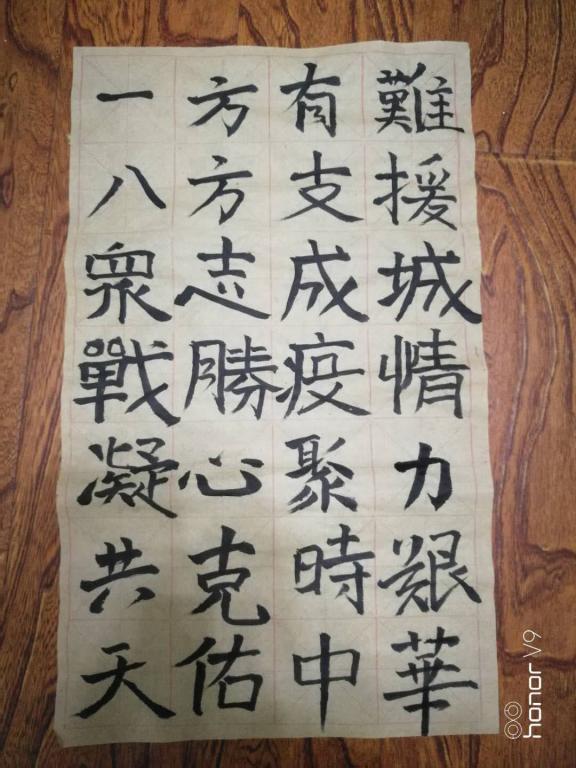 一方有難
八方支援
衆志成城
戰勝疫情
凝心聚力
共克時艱
天佑中華
honor V9